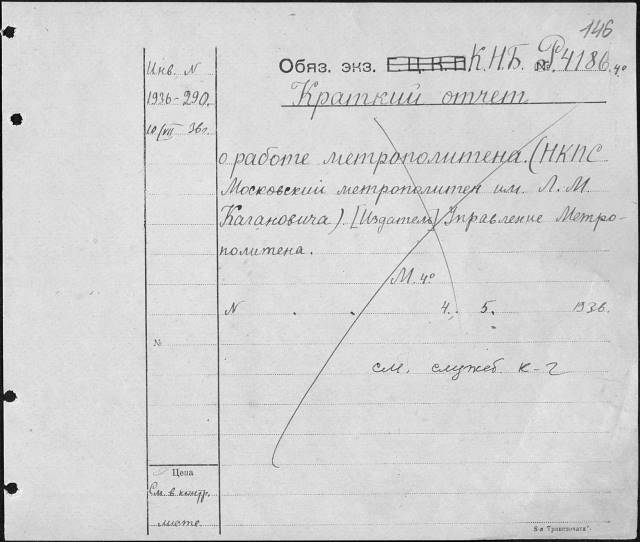 146
Обяз. экз. Е.Ц.К.П К.Н.Б. № Р4186 4°
Инв. N
1936-290.
10/VII 36г.
Краткий отчет
о работе метрополитена. (НКПС
Московский метрополитен им. Л. М.
Кагановича). [Издатель] Управление Метро-
политена.
М. 4°
N . . 4. 5. 1936.
№
см. служеб. к-г
Цена
См. в контр.
листе